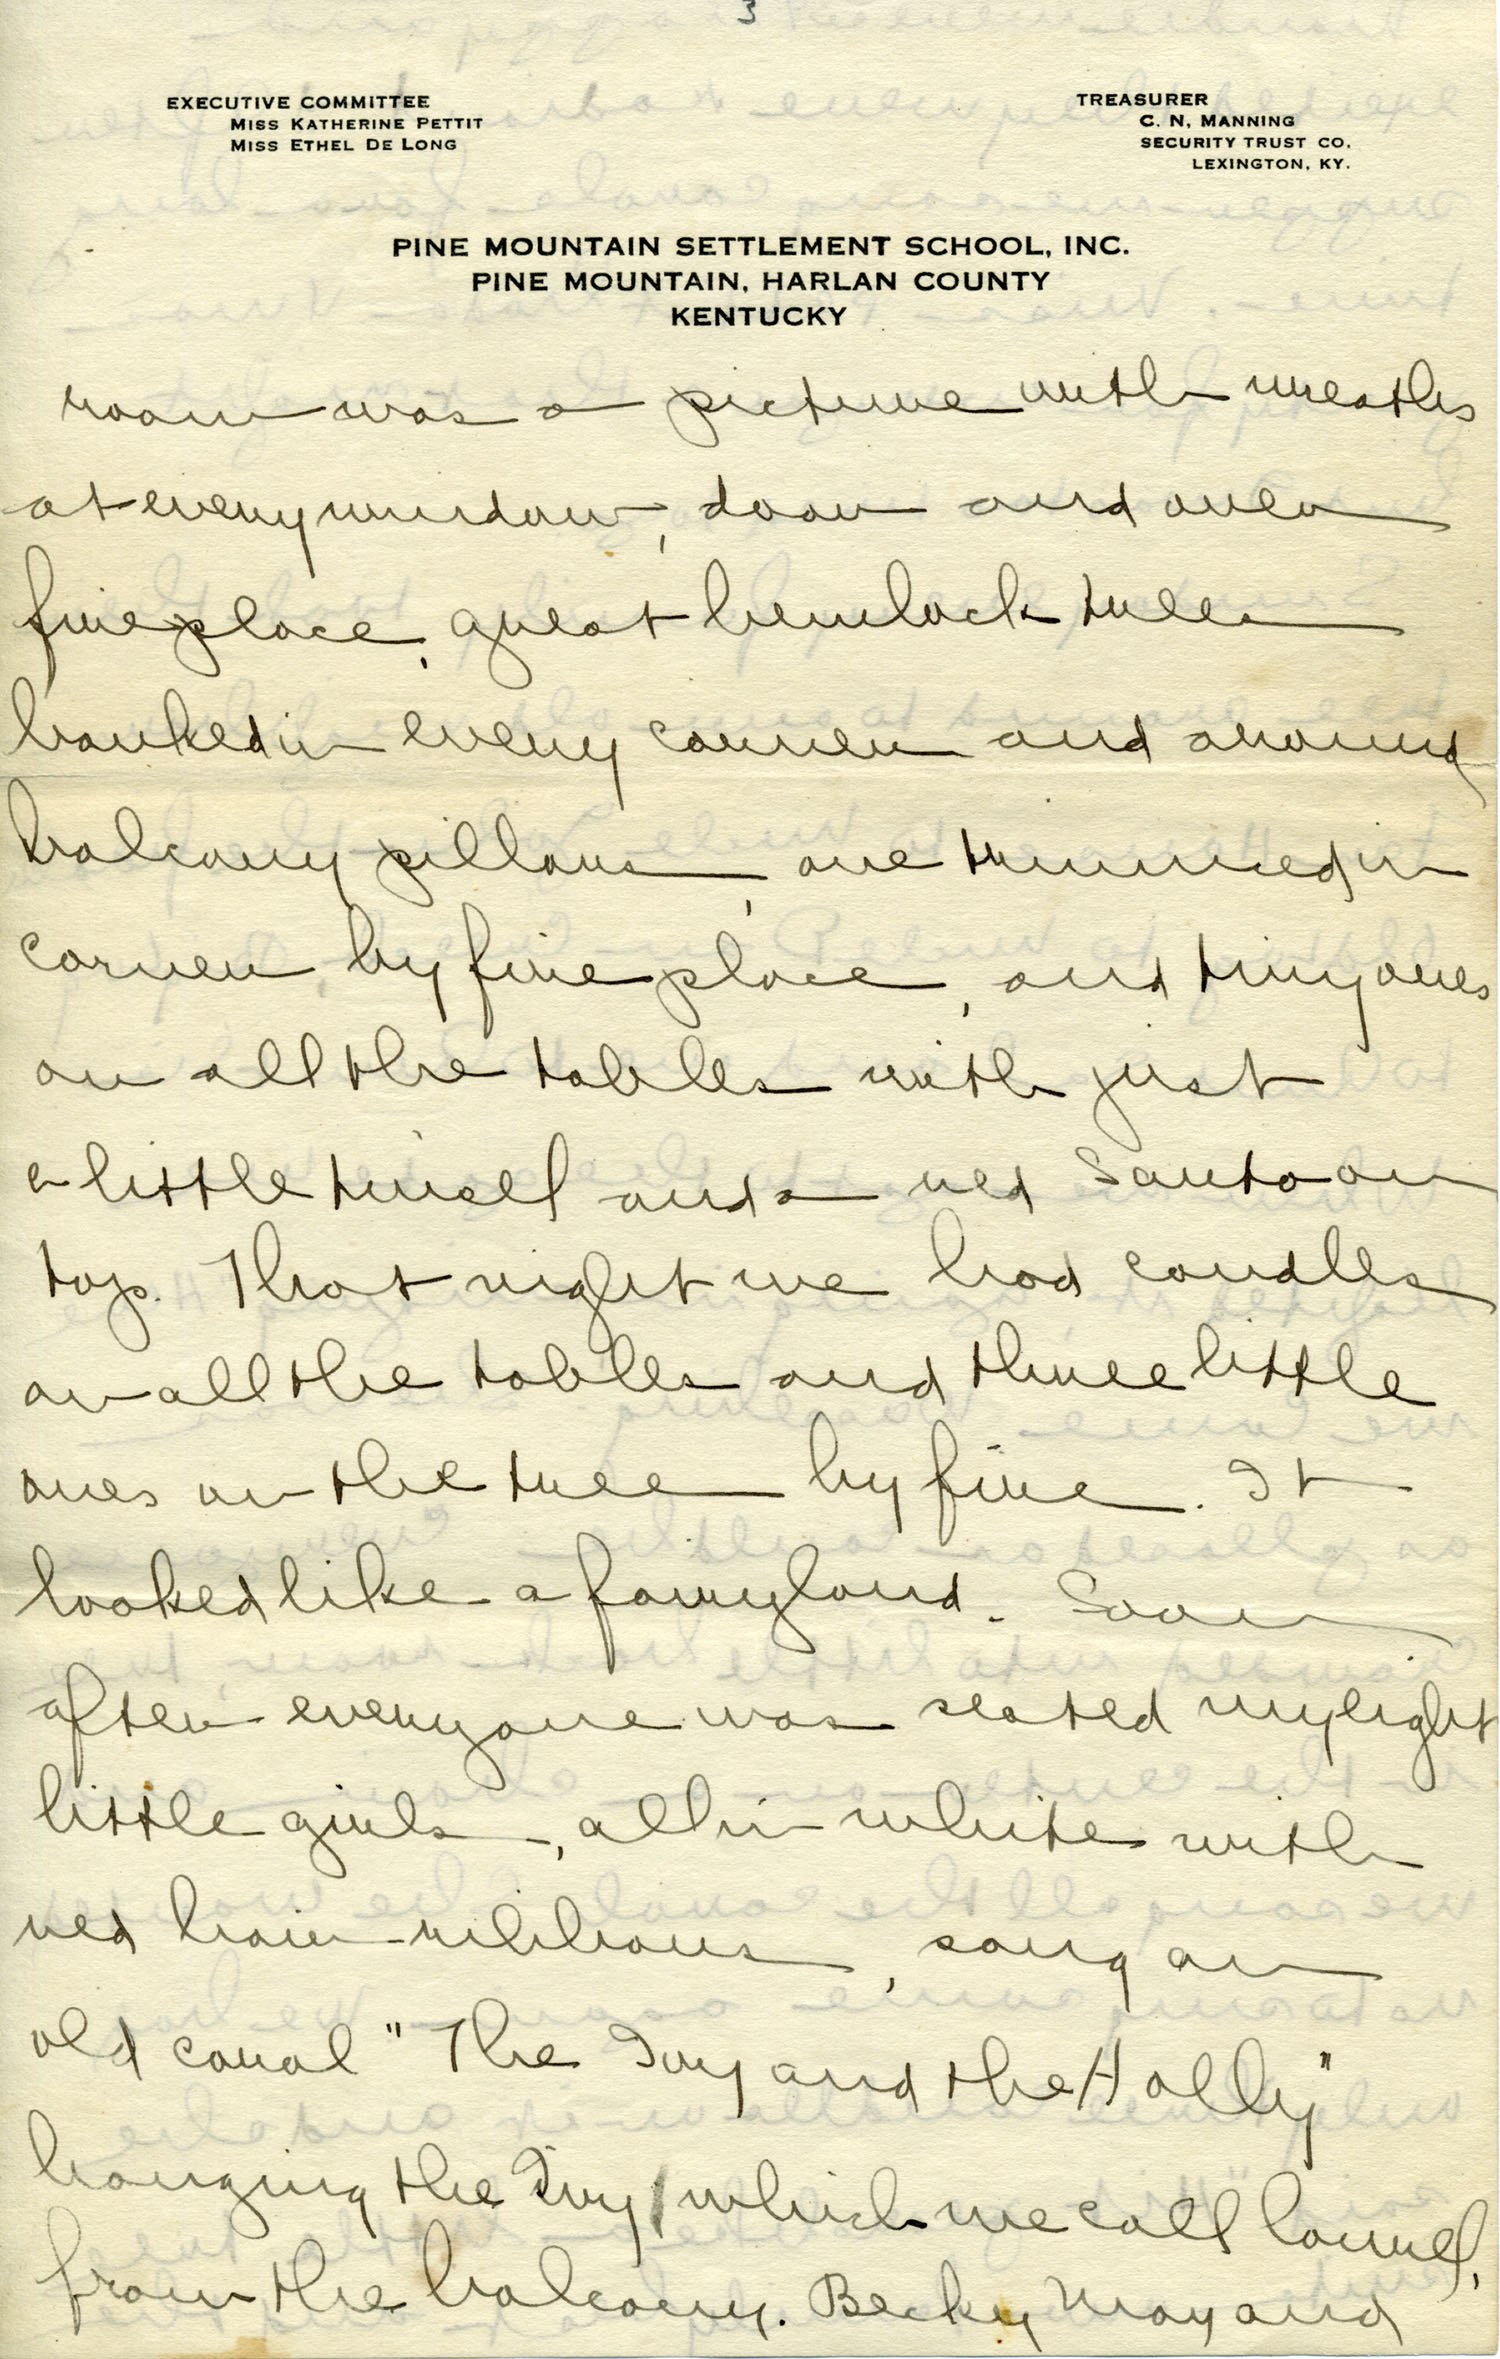 3
EXECUTIVE COMMITTEE
MISS KATHERINE PETTIT
MISS ETHEL DE LONG
TREASURER
C. N. MANNING
SECURITY TRUST CO.
LEXINGTON, KY.
PINE MOUNTAIN SETTLEMENT SCHOOL, INC.
PINE MOUNTAIN, HARLAN COUNTY
KENTUCKY
room was a picture with wreaths
at every window, door and over
fireplace, great hemlock trees
banked in every corner and around
balcony pillars, one trimmed in
corner, by fireplace, and tiny ones
on all the tables with just
a little tinsel and a red Santa on
top. That night we had candles
on all the tables and three little
ones on the tree by fire. It
looked like a fairyland. Soon
after everyone was seated my eight
little girls, all in white with
red hair-ribbons, sang an
old carol "The Ivy and the Holly"
hanging the Ivy, which we call laurel,
from the balcony. Becky May and